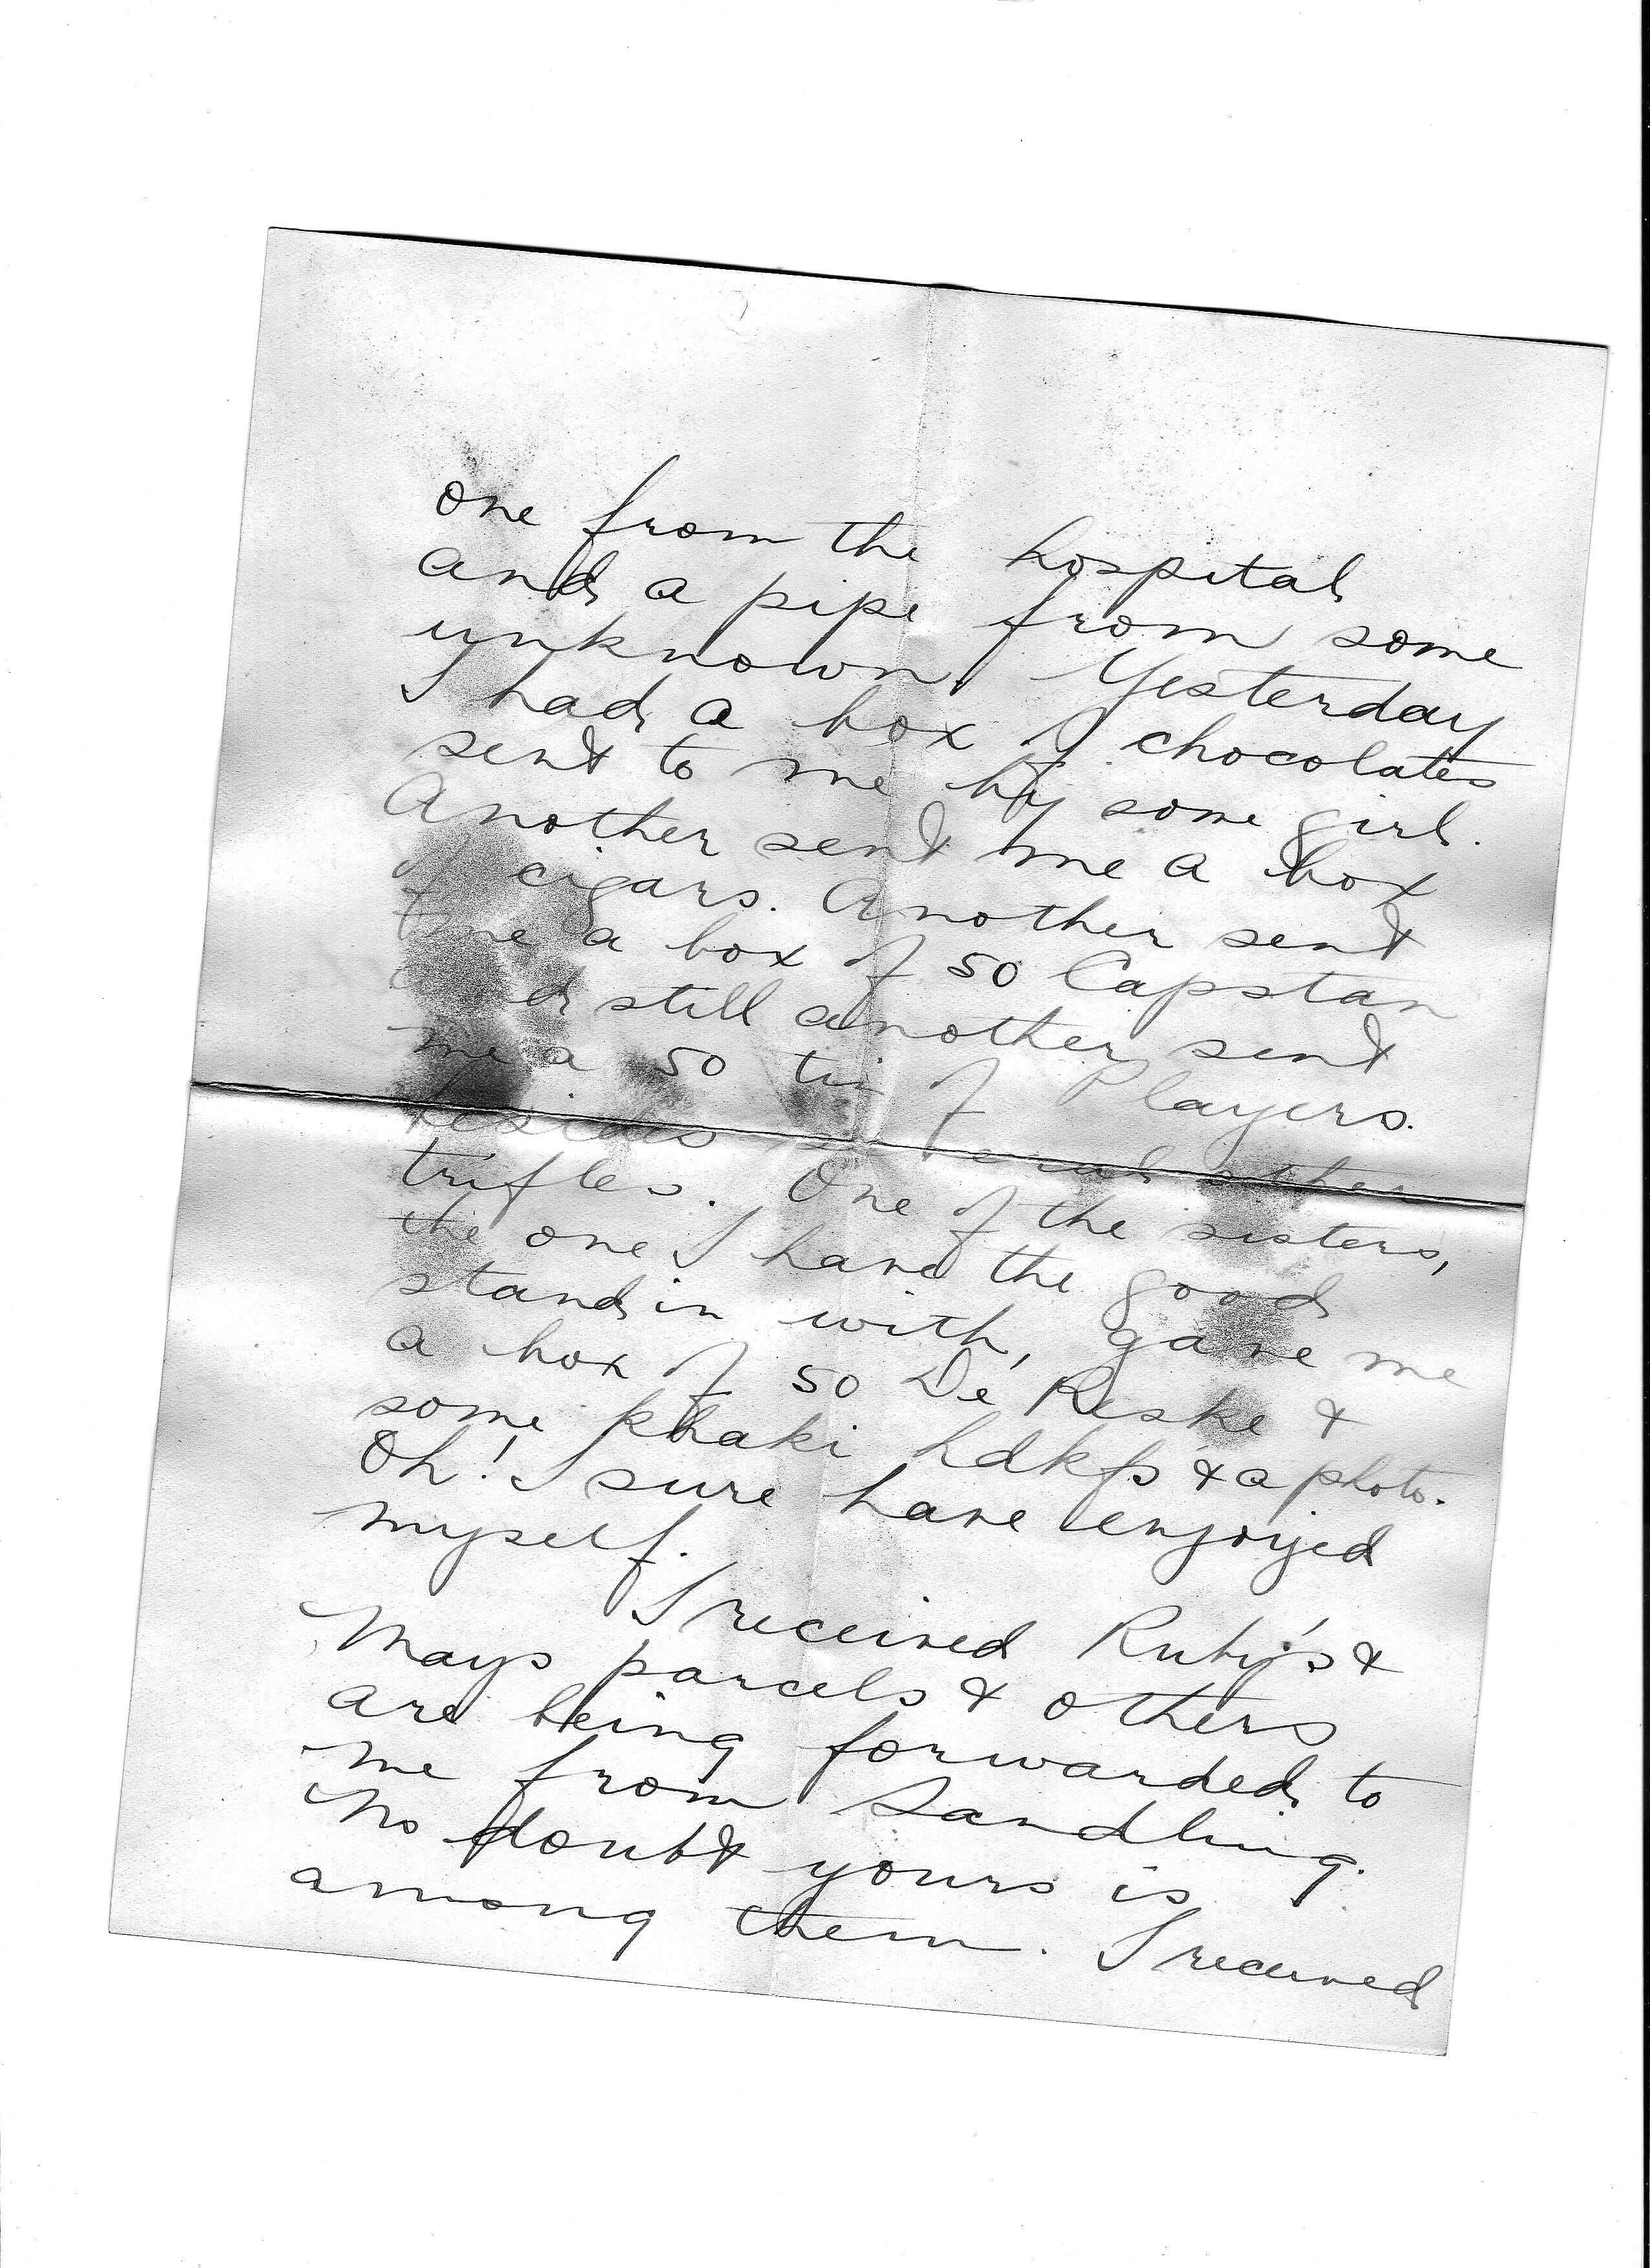 one from the hospital
and a pipe from some
unknown. Yesterday
I had a box of chocolates
sent to me by some girl.
Another sent me a box
of cigars. Another sent
me a box of 50 Capstan
and still another sent
me a 50 tin of Players.
besides several other
trifles. One of the sisters,
the one I have the good
stand in with, gave me
a box of 50 De Reske &
some khaki hdkfs & a photo.
Oh! I sure have enjoyed
myself.
I received Ruby's &
Mays parcels & others
are being forwarded to
me from Sandling.
No doubt yours is
among them. I received